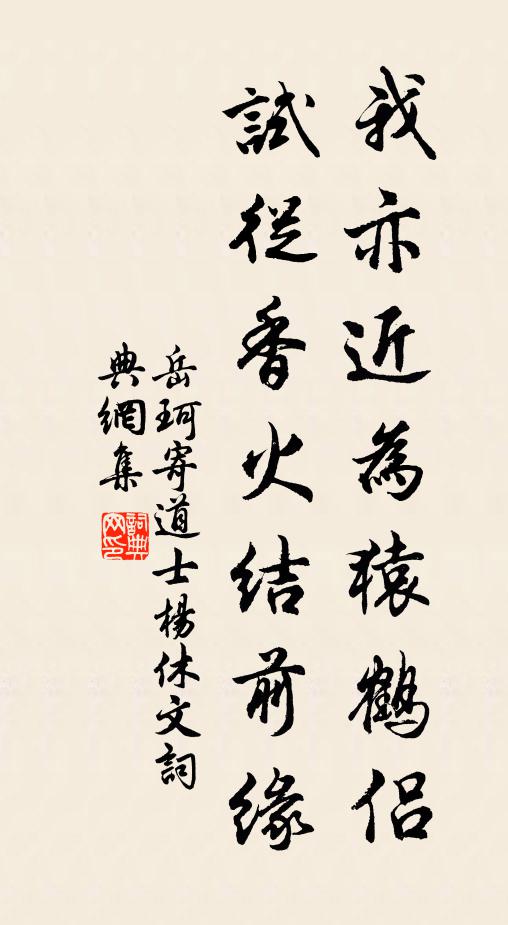 我亦近為猿鶴侶
試從香火結前緣
岳珂寄道士楊休文詞
典網集
詞典網印